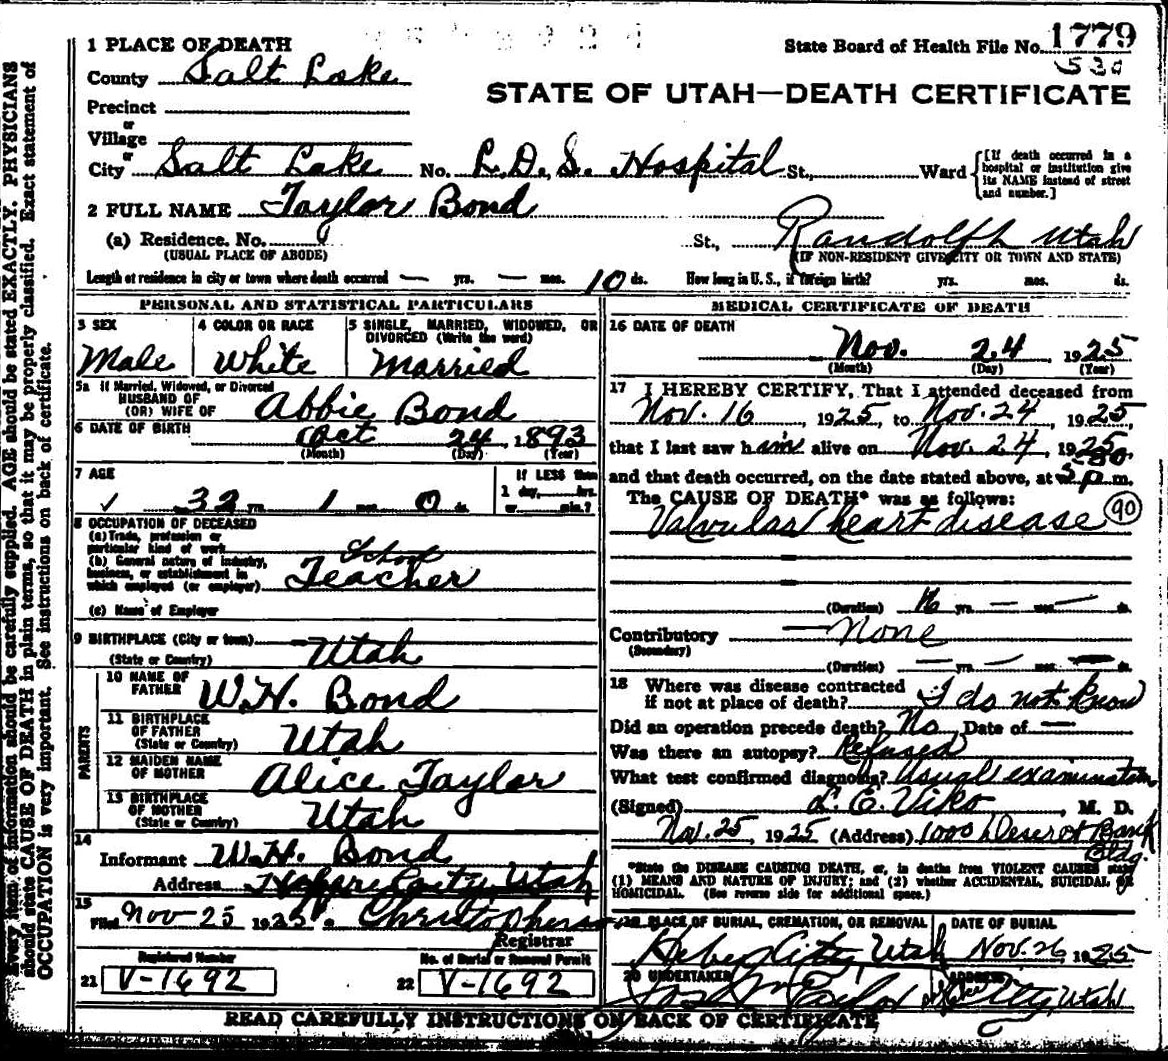 1 PLACE OF DEATH
State Board of Health File No. 1779
530
County Salt Lake
STATE OF UTAH—DEATH CERTIFICATE
Precinct
or
Village
or
City Salt Lake No. L.D.S. Hospital St., Ward
[If death occurred in a hospital or institution give its NAME instead of street and number.]
2 FULL NAME Taylor Bond
(a) Residence. No. St., Randolph Utah
(USUAL PLACE OF ABODE) (IF NON-RESIDENT GIVE CITY OR TOWN AND STATE)
Length of residence in city or town where death occurred — yrs. — mos. 10 ds. How long in U. S., if foreign birth? yrs. mos. ds.
PERSONAL AND STATISTICAL PARTICULARS
3 SEX Male
4 COLOR OR RACE White
5 SINGLE, MARRIED, WIDOWED, OR DIVORCED (Write the word) Married
5a If Married, Widowed, or Divorced
HUSBAND OF
(OR) WIFE OF Abbie Bond
6 DATE OF BIRTH Oct 24, 1893
(Month) (Day) (Year)
7 AGE
32 yrs. 1 mos. 0 ds.
If LESS than
1 day, hrs.
or min.?
8 OCCUPATION OF DECEASED
(a) Trade, profession or
particular kind of work School
(b) General nature of industry,
business, or establishment in
which employed (or employer) Teacher
(c) Name of Employer
9 BIRTHPLACE (City or town)
(State or Country) Utah
PARENTS
10 NAME OF
FATHER W.H. Bond
11 BIRTHPLACE
OF FATHER
(State or Country) Utah
12 MAIDEN NAME
OF MOTHER Alice Taylor
13 BIRTHPLACE
OF MOTHER
(State or Country) Utah
14
Informant W.H. Bond
Address Utah
15
Filed Nov 25 1925
Registrar
Registered Number
21 V-1692
No. of Burial or Removal Permit
22 V-1692
MEDICAL CERTIFICATE OF DEATH
16 DATE OF DEATH
Nov. 24, 1925
(Month) (Day) (Year)
17 I HEREBY CERTIFY, That I attended deceased from
Nov. 16 1925, to Nov. 24, 1925,
that I last saw him alive on Nov. 24, 1925,
and that death occurred, on the date stated above, at p.m.
The CAUSE OF DEATH* was as follows:
Valvular heart disease 90
(Duration) 16 yrs. — mos. — ds.
Contributory — None
(Secondary)
(Duration) — yrs. — mos. — ds.
18 Where was disease contracted
if not at place of death? I do not know
Did an operation precede death? No Date of —
Was there an autopsy? Refused
What test confirmed diagnosis? Usual examination
(Signed) L. E. Viko, M. D.
Nov. 25, 1925 (Address) 1000 Deseret Bank
Bldg.
*State the DISEASE CAUSING DEATH, or, in deaths from VIOLENT CAUSES state
(1) MEANS AND NATURE OF INJURY; and (2) whether ACCIDENTAL, SUICIDAL OR
HOMICIDAL. (See reverse side for additional space.)
19 PLACE OF BURIAL, CREMATION, OR REMOVAL
Heber City, Utah
DATE OF BURIAL
Nov. 26, 1925
20 UNDERTAKER
ADDRESS
City, Utah
READ CAREFULLY INSTRUCTIONS ON BACK OF CERTIFICATE
Every item of information should be carefully supplied. AGE should be stated EXACTLY. PHYSICIANS
should state CAUSE OF DEATH in plain terms, so that it may be properly classified. Exact statement of
OCCUPATION is very important. See instructions on back of certificate.